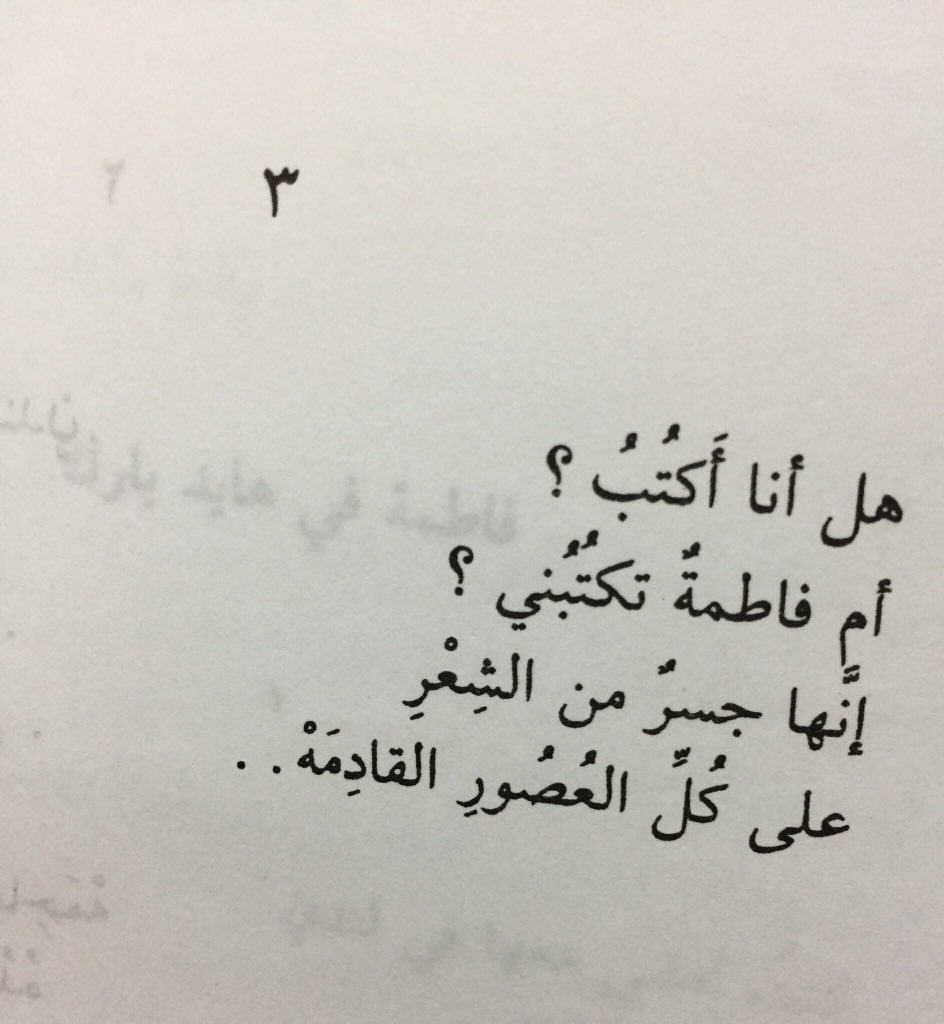 ٣
هل أنا أَكتُبُ ؟
أم فاطمةٌ تكتُبُني ؟
إنَّها جسرٌ من الشِعْرِ
على كُلِّ العُصُورِ القادِمَهْ . .